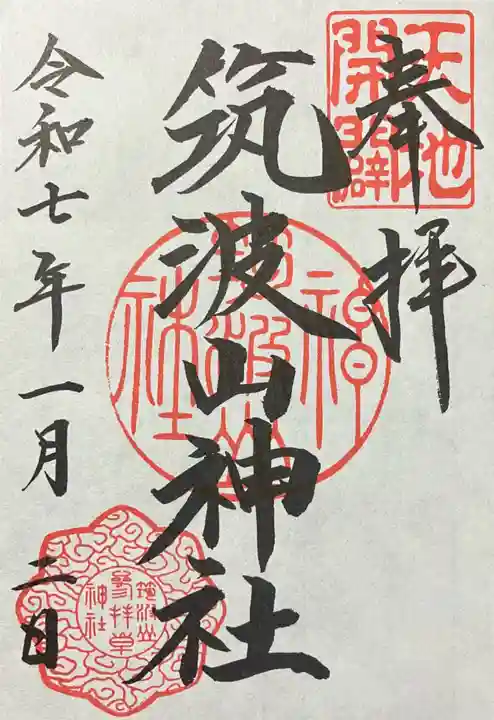 奉拝
天地
開闢
筑波山神社
筑波山
神社
令和七年一月二日
筑波山
参拝章
神社